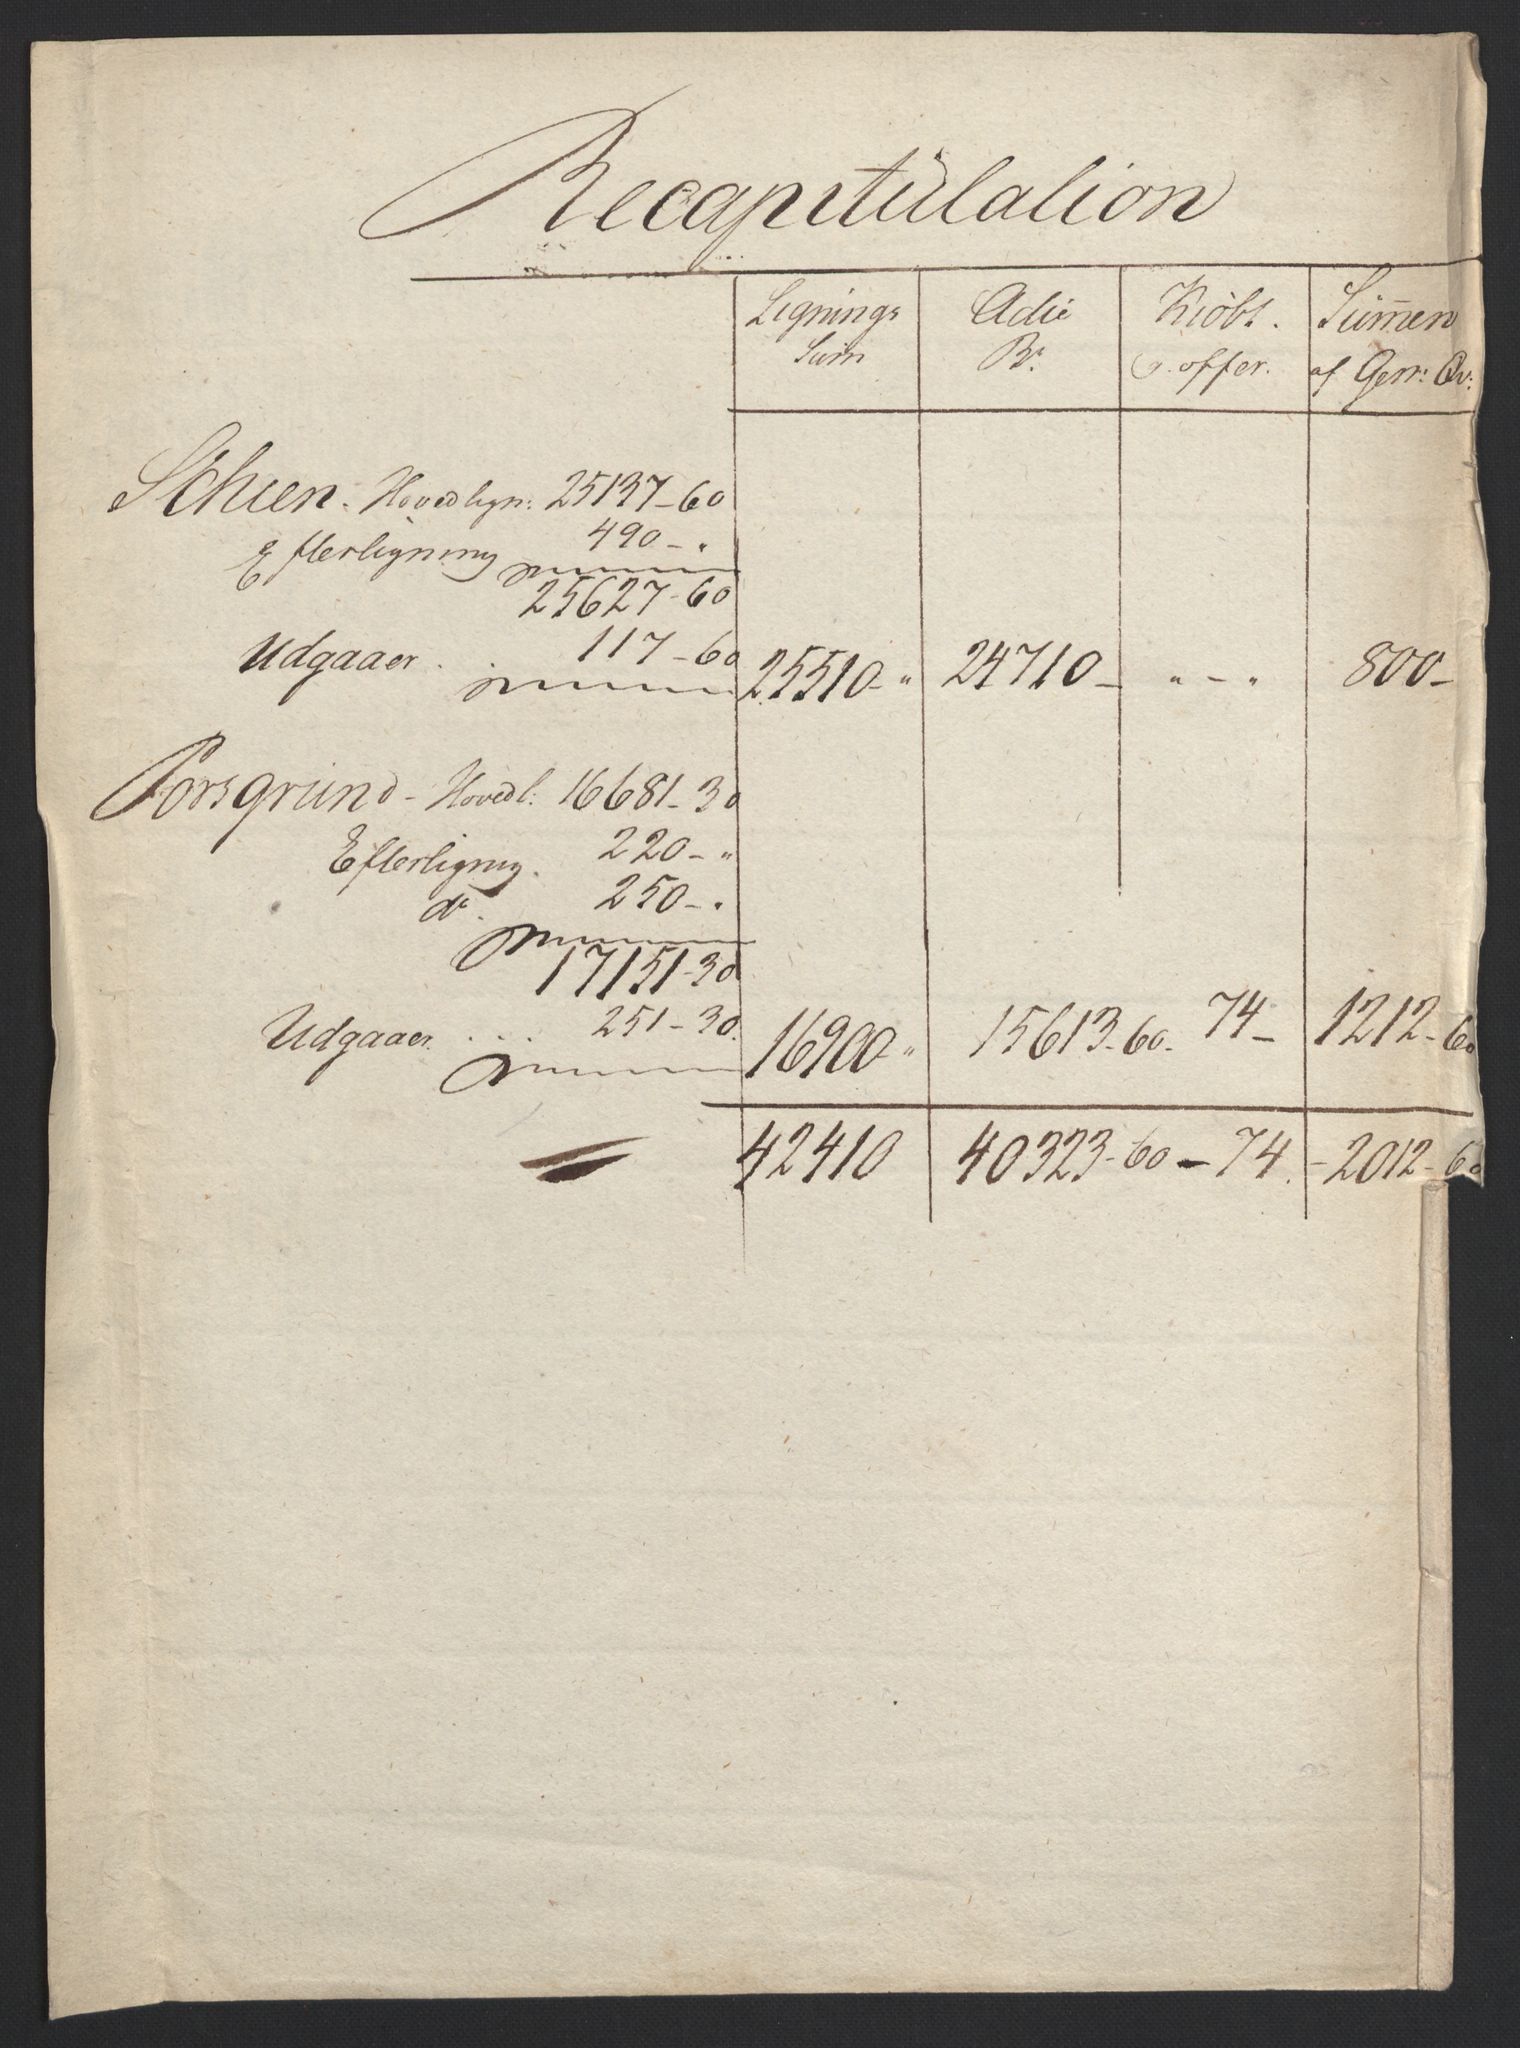 Recapitulation
Lignings Adie Kiöbt. Summen
Sum Br. offer. af Gen: Qv:
Schien. Hovedlign: 25137-60
Efterligning 490- "
25627-60
Udgaaer . . 117-60 25510- " 24710- " - " 800-
Porsgrund - Hovedl: 16681-30
Efterligning. 220- "
do. 250- "
17151-30
Udgaaer. . . . 251-30. 16900 " 15613-60- 74- 1212-60
42410 40323-60-74. -2012-60